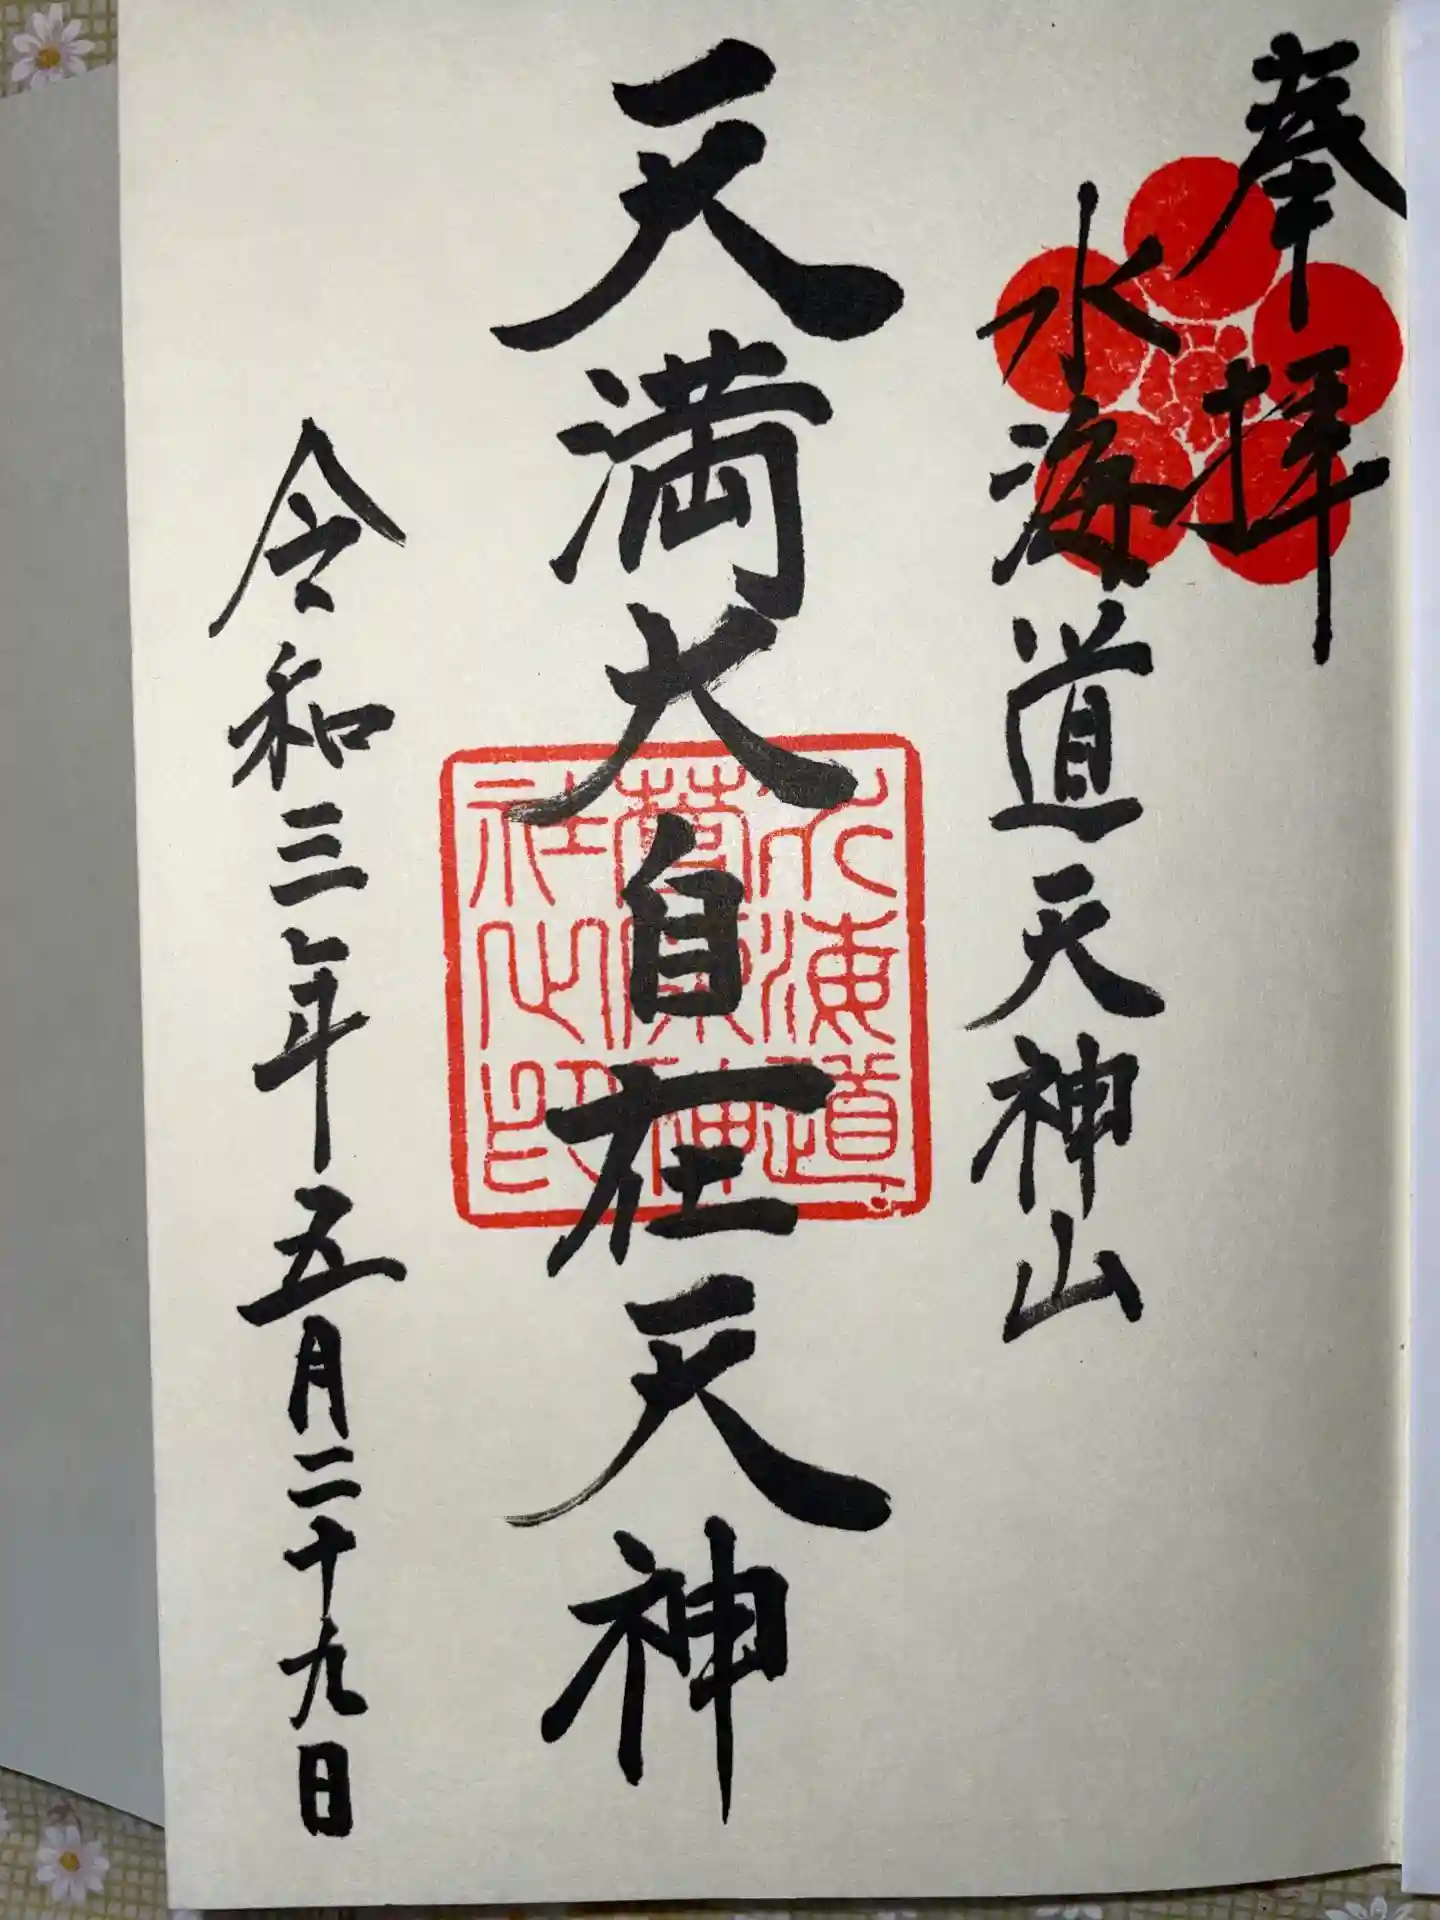 奉拝
水海道天神山
天満大自在天神
水海道
菅原神
社之印
令和三年五月二十九日